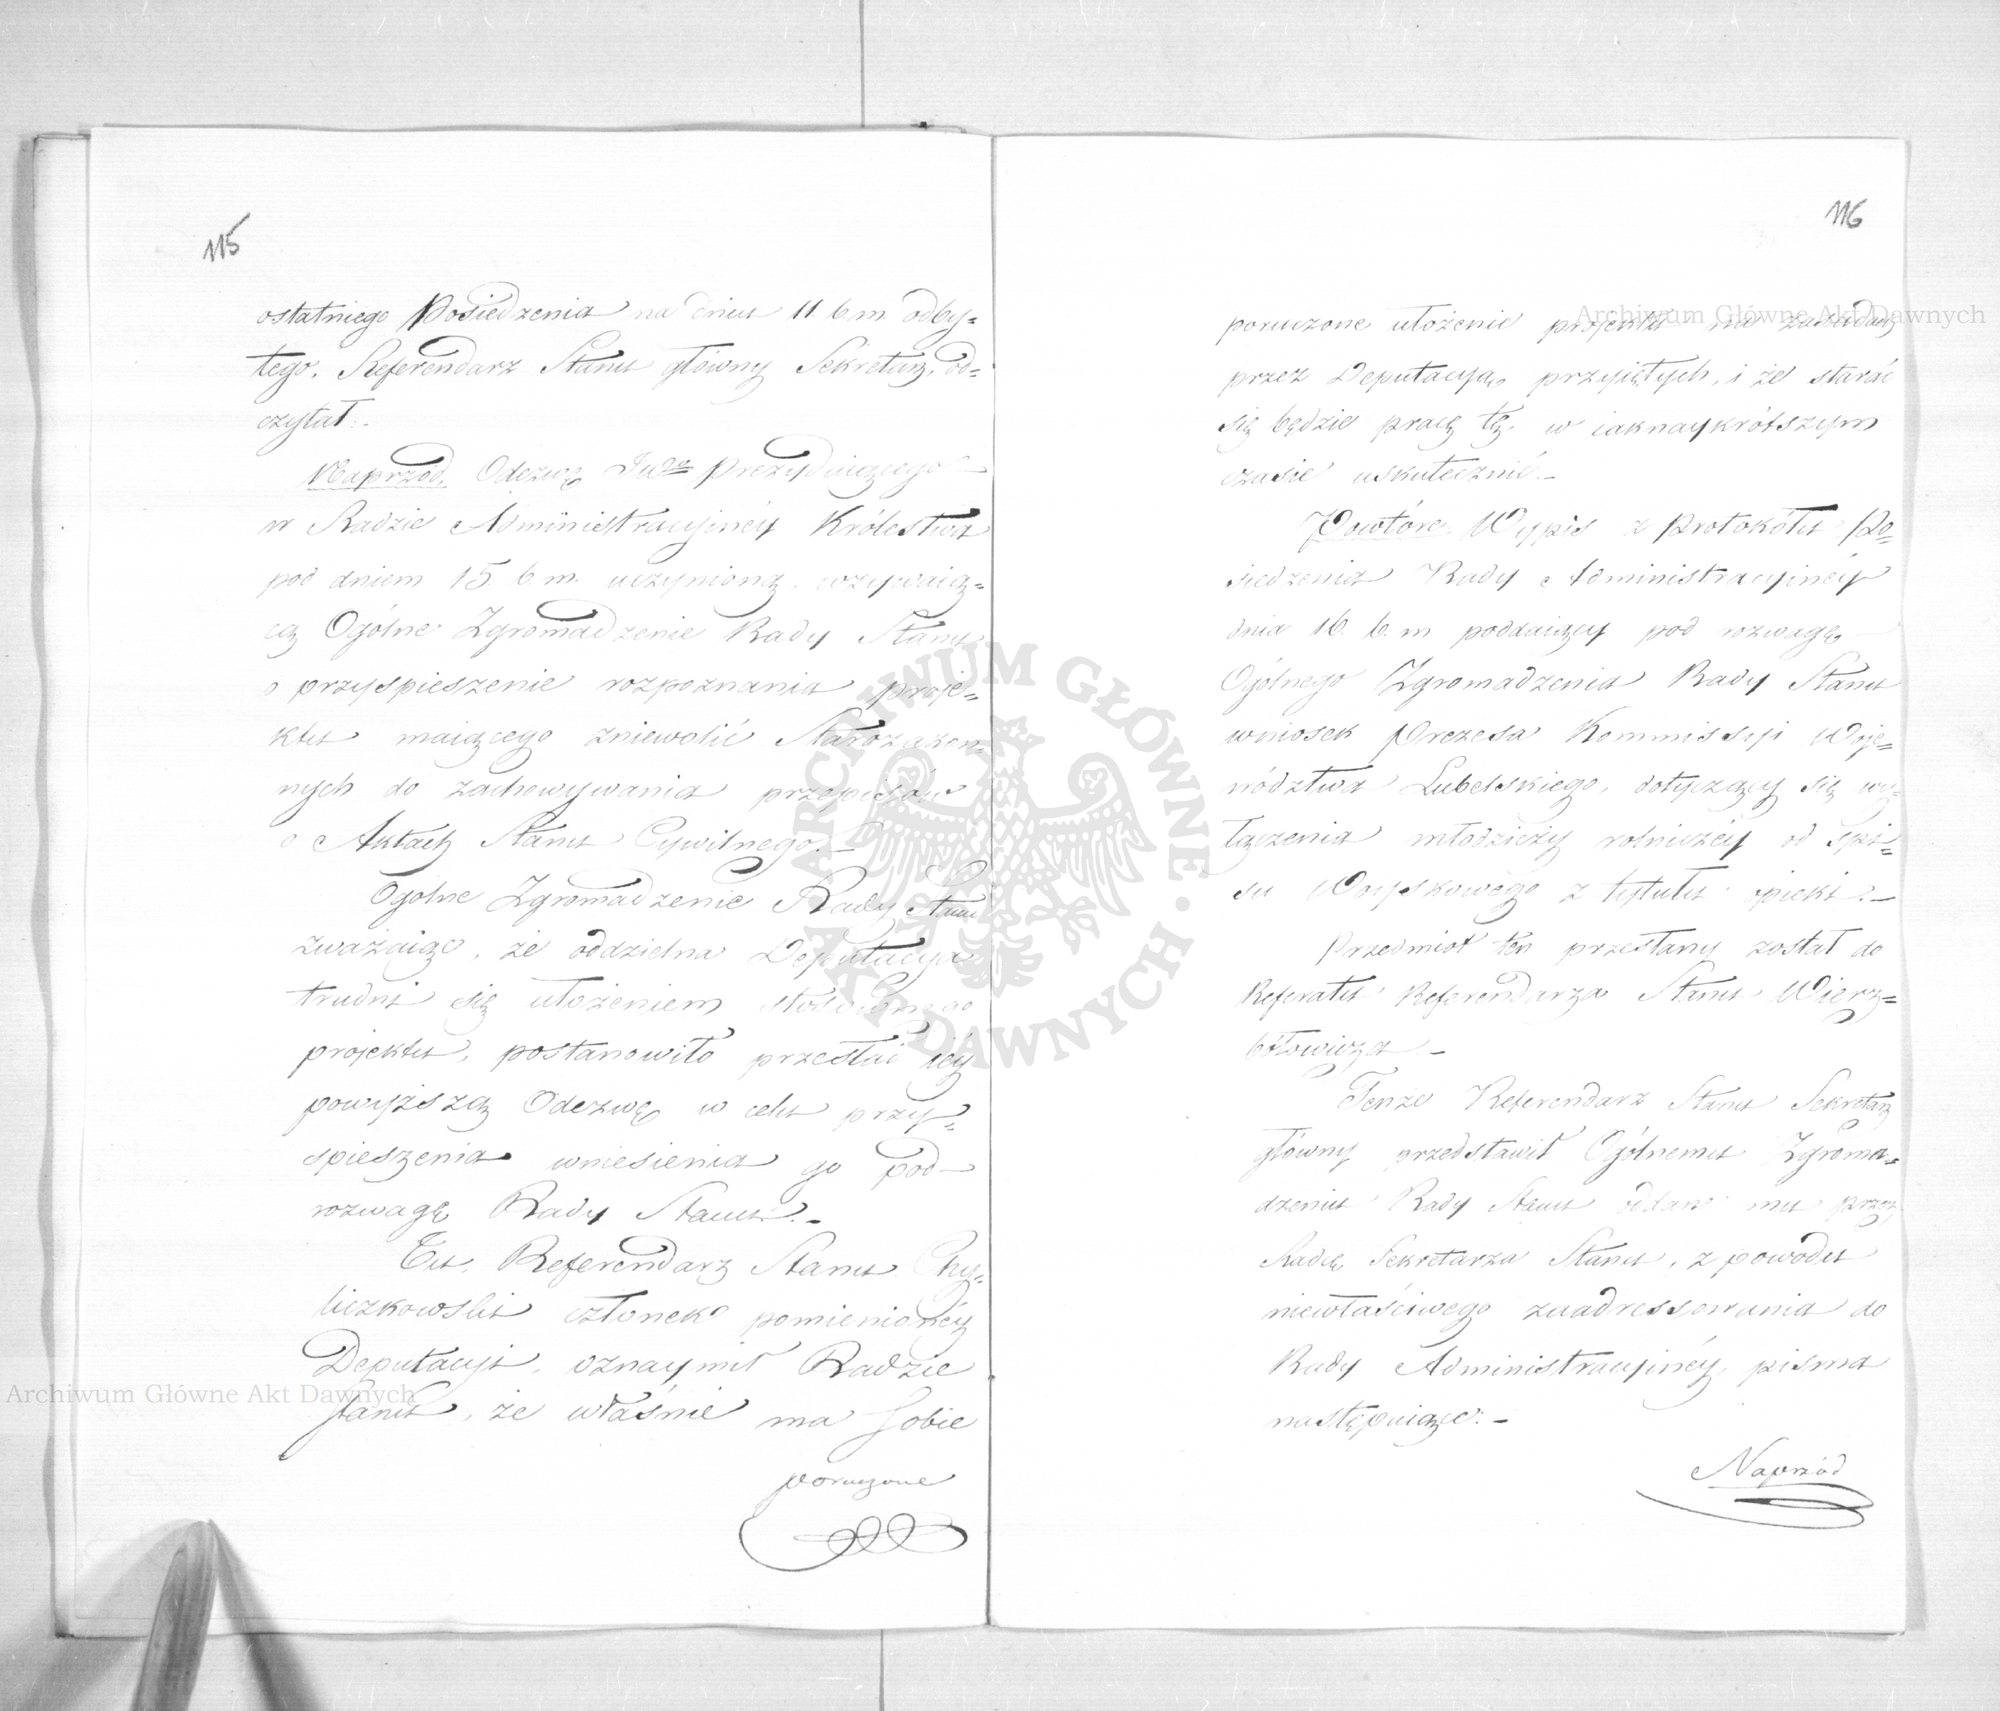 115
ostatniego Posiedzenia na dniu 11 b m odby=
tego, Referendarz Stanu główny Sekretarz, od=
czytał:
Naprzód, Odezwę Prezyduiącego
w Radzie Administracyinéy Królestwa
pod dniem 15 b m. uczynioną, wzywaią=
cą Ogólne Zgromadzenie Rady Stanu
o przyspieszenie rozpoznania proje=
ktu maiącego zniewolić Starozakon=
nych do zachowywania przepisów
o Aktach Stanu Cywilnego.—
Ogólne Zgromadzenie Rady Stanu
zważaiąc, że oddzielna Deputacya
trudni się ułożeniem stosownego
projektu, postanowiło przesłać iéy
powyższą Odezwę w celu przy=
spieszenia wniesienia go pod
rozwagę Rady Stanu.—
Tu, Referendarz Stanu Chy=
liczkowski członek pomienionéy
Deputacyi, oznaymił Radzie
Stanu, że właśnie ma sobie
poruczone
116
poruczone ułożenie projektu na zasadach
przez Deputacyą przyiętych, i że starać
się będzie pracę tę, w iaknaykrótszym
czasie uskutecznić.—
Powtóre Wypis z Protokółu Po=
siedzenia Rady Administracyinéy
dnia 16. b. m poddaiący pod rozwagę
Ogólnego Zgromadzenia Rady Stanu
wniosek Prezesa Kommissyi Woje=
wództwa Lubelskiego, dotyczący się wy=
łączenia młodzieży rolniczéy od spi=
su Woyskowego z tytułu opieki.—
Przedmiot ten przesłany został do
Referatu Referendarza Stanu Wierz=
bołowicza.—
Tenże Referendarz Stanu Sekretarz
główny przedstawił Ogólnemu Zgroma=
dzeniu Rady Stanu oddane mu przez
Radcę Sekretarza Stanu, z powodu
niewłaściwego zaadressowania do
Rady Administracyinéy, pisma
następuiące:—
Naprzód
Archiwum Główne Akt Dawnych
Archiwum Główne Akt Dawnych
ARCHIWUM GŁÓWNE · AKT DAWNYCH ·